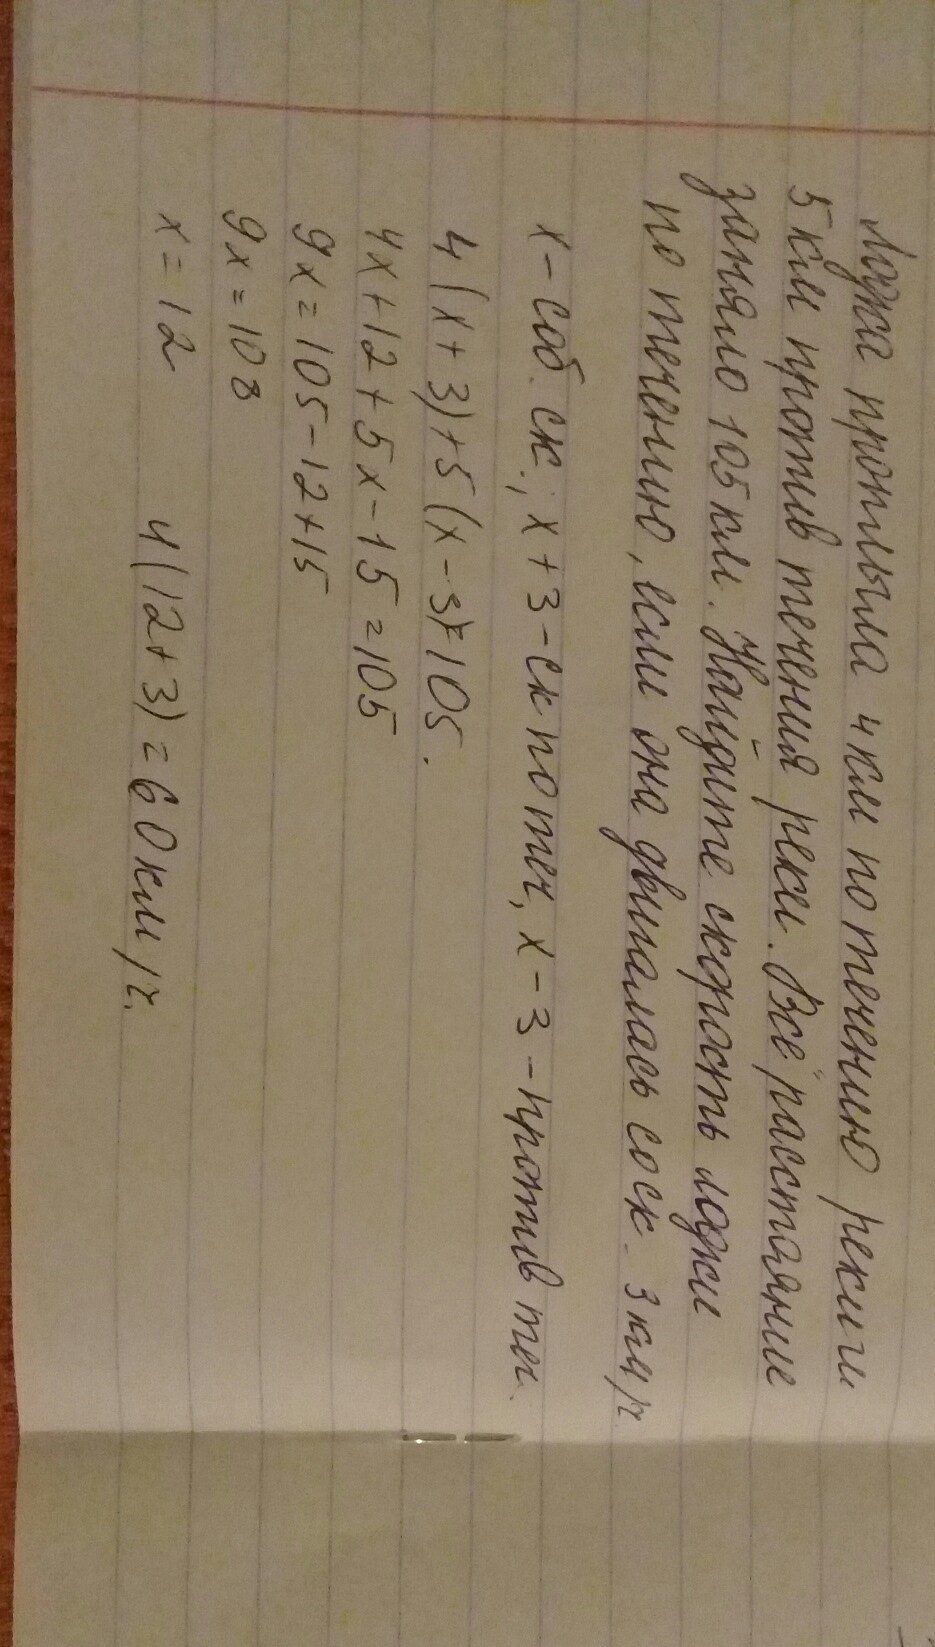 Лодка проплыла 4км по течению реки и
5км против течения реки. Все расстояние
заняло 105км. Найдите скорость лодки
по течению, если она двигалась со ск. 3км/ч.
x - соб. ск.; x + 3 - ск по теч, x - 3 - против теч.
4(x + 3) + 5(x - 3) = 105.
4x + 12 + 5x - 15 = 105
9x = 105 - 12 + 15
9x = 108
x = 12 4(12 + 3) = 60км/ч.